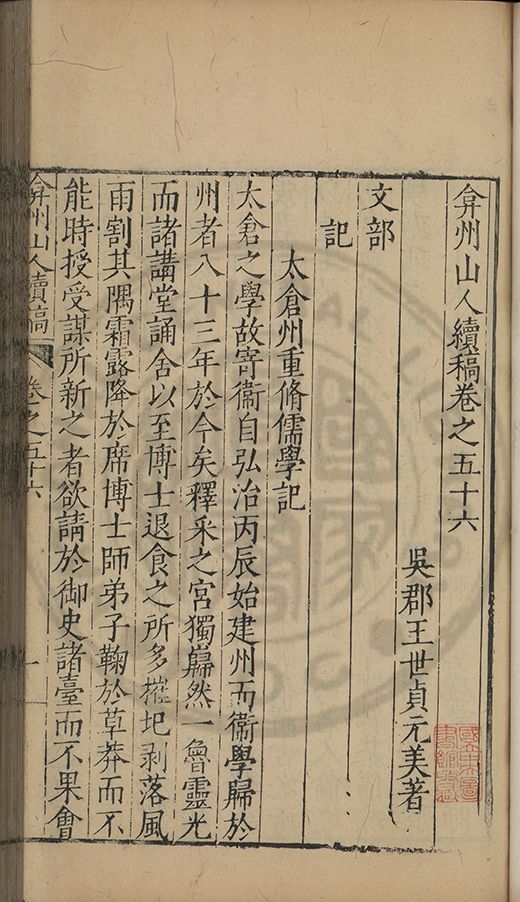 弇州山人續稿卷之五十六
吳郡王世貞元美著
文部
記
太倉州重脩儒學記
太倉之學故寄衞自弘治丙辰始建州而衞學歸於
州者八十三年於今矣釋釆之宮獨巋然一魯靈光
而諸講堂誦舍以至博士退食之所多摧圮剥落風
雨割其隅霜露降於席博士師弟子鞠於草莽而不
能時授受謀所新之者欲請於御史諸臺而不果會
弇州山人續稿 卷之五十六 一